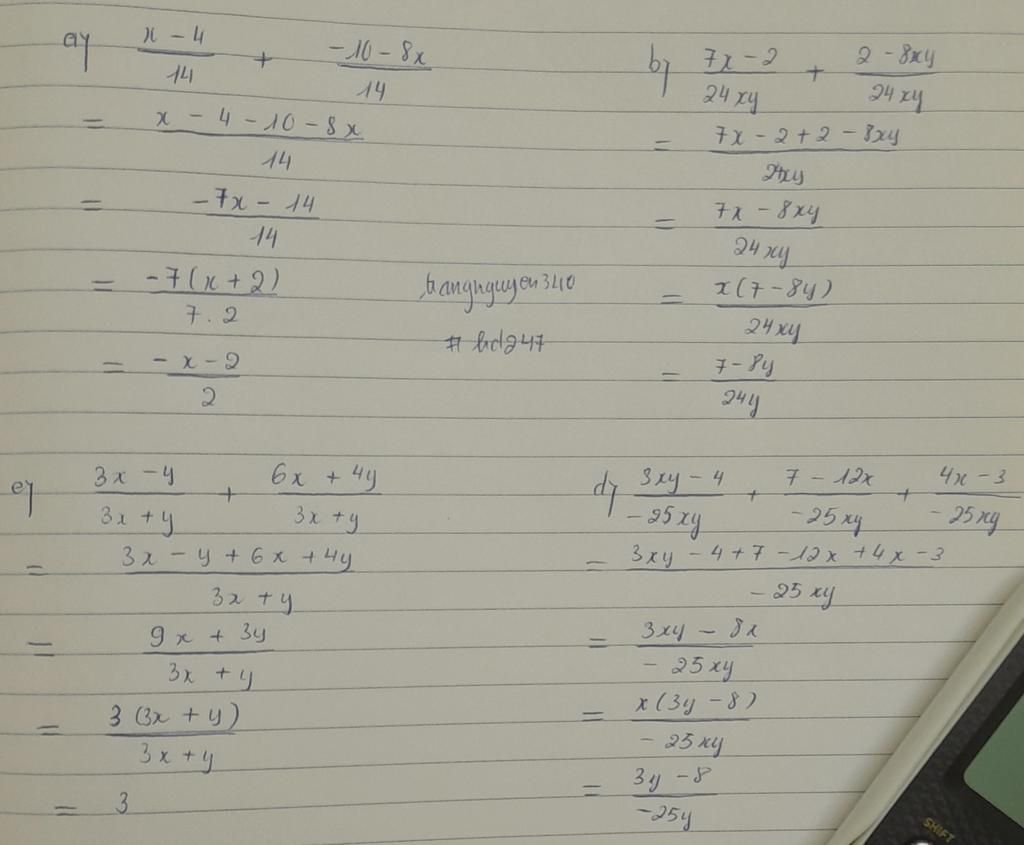 a) \frac{x - 4}{14} + \frac{-10 - 8x}{14}
= \frac{x - 4 - 10 - 8x}{14}
= \frac{-7x - 14}{14}
= \frac{-7(x + 2)}{7 . 2}
= \frac{-x - 2}{2}
b) \frac{7x - 2}{24xy} + \frac{2 - 8xy}{24xy}
= \frac{7x - 2 + 2 - 8xy}{24xy}
= \frac{7x - 8xy}{24xy}
= \frac{x(7 - 8y)}{24xy}
= \frac{7 - 8y}{24y}
# hd247
c) \frac{3x - y}{3x + y} + \frac{6x + 4y}{3x + y}
= \frac{3x - y + 6x + 4y}{3x + y}
= \frac{9x + 3y}{3x + y}
= \frac{3(3x + y)}{3x + y}
= 3
d) \frac{3xy - 4}{-25xy} + \frac{7 - 12x}{-25xy} + \frac{4x - 3}{-25xy}
= \frac{3xy - 4 + 7 - 12x + 4x - 3}{-25xy}
= \frac{3xy - 8x}{-25xy}
= \frac{x(3y - 8)}{-25xy}
= \frac{3y - 8}{-25y}
SHIFT